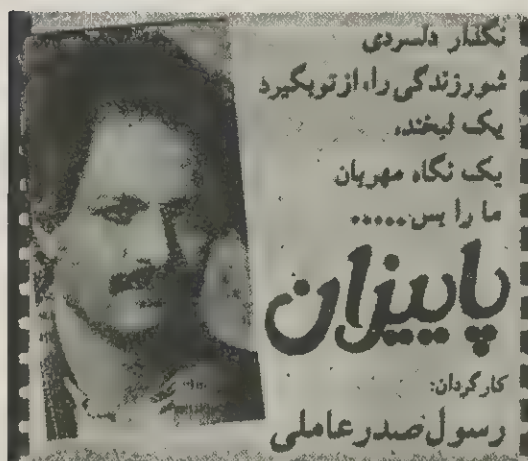 نگذار دلسردی
شور زندگی را، از تو بگیرد
یک لبخند،
یک نگاه مهربان
ما را بس.....
پاییزان
کارگردان:
رسول صدر عاملی